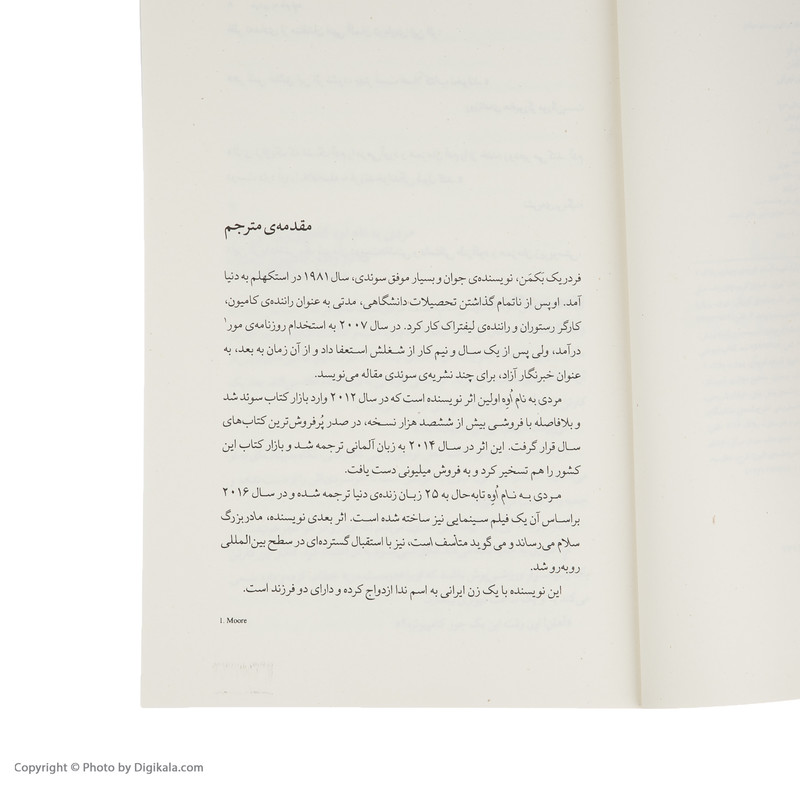 مقدمه‌ی مترجم
فردریک بَکمَن، نویسنده‌ی جوان و بسیار موفق سوئدی، سال ۱۹۸۱ در استکهلم به دنیا
آمد. او پس از ناتمام گذاشتن تحصیلات دانشگاهی، مدتی به عنوان راننده‌ی کامیون،
کارگر رستوران و راننده‌ی لیفتراک کار کرد. در سال ۲۰۰۷ به استخدام روزنامه‌ی مور۱
درآمد، ولی پس از یک سال و نیم کار از شغلش استعفا داد و از آن زمان به بعد، به
عنوان خبرنگار آزاد، برای چند نشریه‌ی سوئدی مقاله می‌نویسد.
مردی به نام اُوِه اولین اثر نویسنده است که در سال ۲۰۱۲ وارد بازار کتاب سوئد شد
و بلافاصله با فروشی بیش از ششصد هزار نسخه، در صدر پُرفروش‌ترین کتاب‌های
سال قرار گرفت. این اثر در سال ۲۰۱۴ به زبان آلمانی ترجمه شد و بازار کتاب این
کشور را هم تسخیر کرد و به فروش میلیونی دست یافت.
مردی به نام اُوِه تابه‌حال به ۲۵ زبان زنده‌ی دنیا ترجمه شده و در سال ۲۰۱۶
براساس آن یک فیلم سینمایی نیز ساخته شده است. اثر بعدی نویسنده، مادربزرگ
سلام می‌رساند و می گوید متأسف است، نیز با استقبال گسترده‌ای در سطح بین‌المللی
روبه‌رو شد.
این نویسنده با یک زن ایرانی به اسم ندا ازدواج کرده و دارای دو فرزند است.
1. Moore
Copyright © Photo by Digikala.com